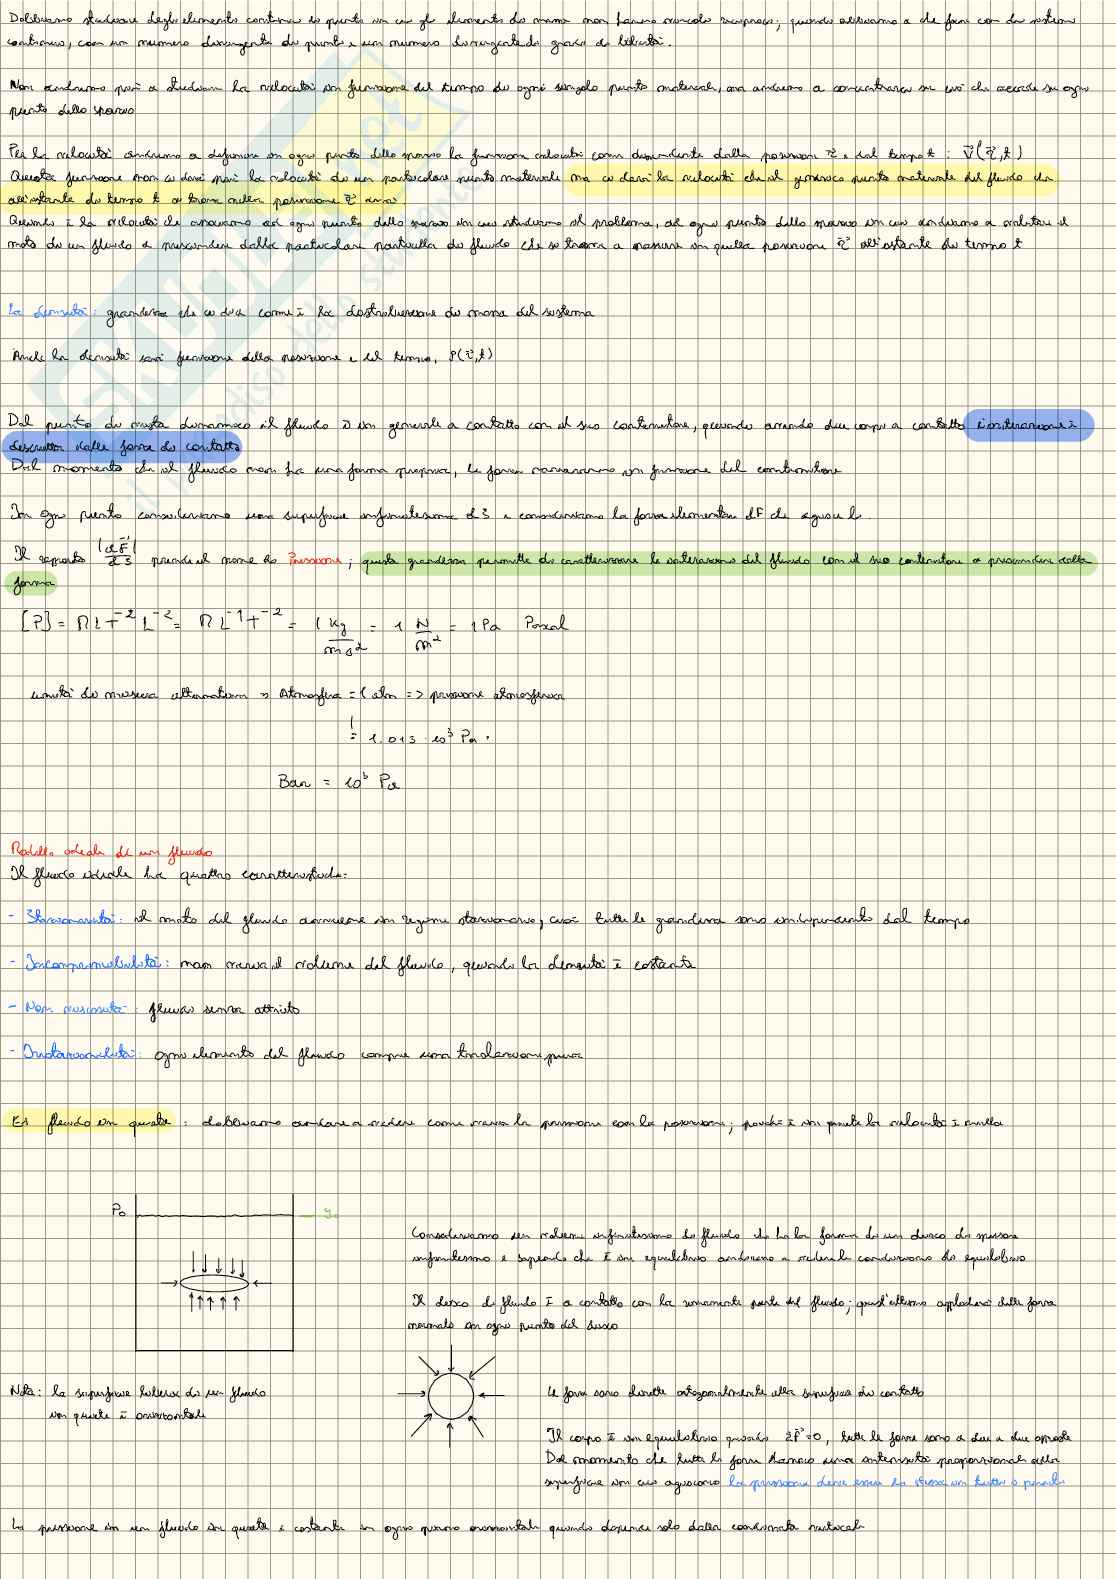 Dobbiamo studiare degli elementi continui di punti in cui gli elementi di massa non hanno vincolo reciproco; quando abbiamo a che fare con dei sistemi
continui, con un numero divergente di punti e un numero divergente di gradi di libertà.
Non andremo poi a studiare la velocità in funzione del tempo di ogni singolo punto materiale, ma andremo a concentrarci su ciò che accade su ogni
punto dello spazio
Per la velocità andremo a definire in ogni punto dello spazio la funzione velocità come dipendente dalla posizione r⃗ e dal tempo t : V⃗(r⃗,t)
Questa funzione non ci darà poi la velocità di un particolare punto materiale ma ci darà la velocità che il generico punto materiale del fluido che
all'istante di tempo t si trova nella posizione r⃗ avrà.
Questa è la velocità che associamo ad ogni punto dello spazio in cui studiamo il problema, ad ogni punto dello spazio in cui andiamo a valutare il
moto di un fluido a prescindere dalla particolare particella di fluido che si trova a passare in quella posizione r⃗ all'istante di tempo t
La densità: grandezza che ci dice come è la distribuzione di massa del sistema
Anche la densità sarà funzione della posizione e del tempo, ρ(r⃗,t)
Dal punto di vista dinamico il fluido è in generale a contatto con il suo contenitore, quando avendo due corpi a contatto l'interazione è
descritta dalle forze di contatto
Dal momento che il fluido non ha una forma propria, le forze varieranno in funzione del contenitore
In ogni punto consideriamo una superficie infinitesima dS e consideriamo la forza elementare dF che agisce lì.
Il rapporto |dF⃗|/dS prende il nome di Pressione; questa grandezza permette di caratterizzare le interazioni del fluido con il suo contenitore a prescindere dalla
forma
[P] = MLT⁻² L⁻² = ML⁻¹T⁻² = 1 kg/ms² = 1 N/m² = 1 Pa Pascal
unità di misura alternativa → Atmosfera = 1 atm => pressione atmosferica
= 1.013 · 10⁵ Pa .
Bar = 10⁵ Pa
Modello ideale di un fluido
Il fluido ideale ha quattro caratteristiche:
- Stazionarietà: il moto del fluido avviene in regime stazionario, cioè tutte le grandezze sono indipendenti dal tempo
- Incompressibilità: non varia il volume del fluido, quando la densità è costante
- Non viscosità: fluido senza attrito
- Irrotazionalità: ogni elemento del fluido compie una traslazione pura
Es fluido in quiete : dobbiamo andare a vedere come varia la pressione con la posizione; poiché è in quiete la velocità è nulla
P₀
y₀
Consideriamo un volume infinitesimo di fluido che ha la forma di un disco di spessore
infinitesimo e sapendo che è in equilibrio andremo a vedere le condizioni di equilibrio
Il disco di fluido è a contatto con la rimanente parte del fluido; quest'ultimo applicherà delle forze
normali in ogni punto del disco
Nota: la superficie libera di un fluido
in quiete è orizzontale
Le forze sono dirette ortogonalmente alla superficie di contatto
Il corpo è in equilibrio quando ΣF⃗=0, tutte le forze sono a due a due opposte
Dal momento che tutte le forze hanno una intensità proporzionale alla
superficie in cui agiscono la pressione deve essere la stessa in tutti i punti
La pressione in un fluido in quiete è costante in ogni piano orizzontale quindi dipende solo dalla coordinata verticale